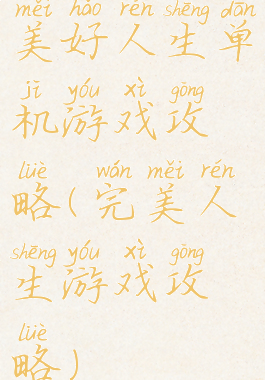 měi hǎo rén shēng dān
美好人生单
jī yóu xì gōng
机游戏攻
lüè wán měi rén
略(完美人
shēng yóu xì gōng
生游戏攻
lüè
略)